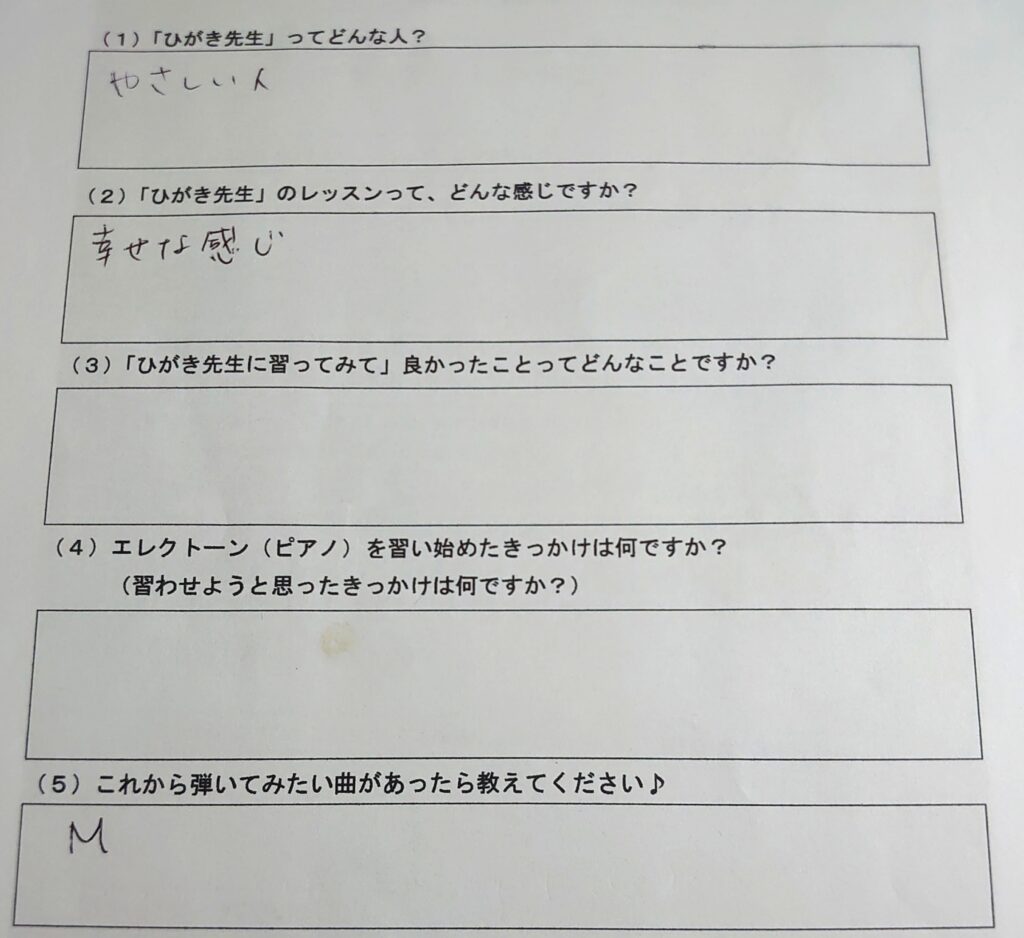 (1)「ひがき先生」ってどんな人？
やさしい人
(2)「ひがき先生」のレッスンって、どんな感じですか？
幸せな感じ
(3)「ひがき先生に習ってみて」良かったことってどんなことですか？
(4)エレクトーン(ピアノ)を習い始めたきっかけは何ですか？
(習わせようと思ったきっかけは何ですか？)
(5)これから弾いてみたい曲があったら教えてください♪
M